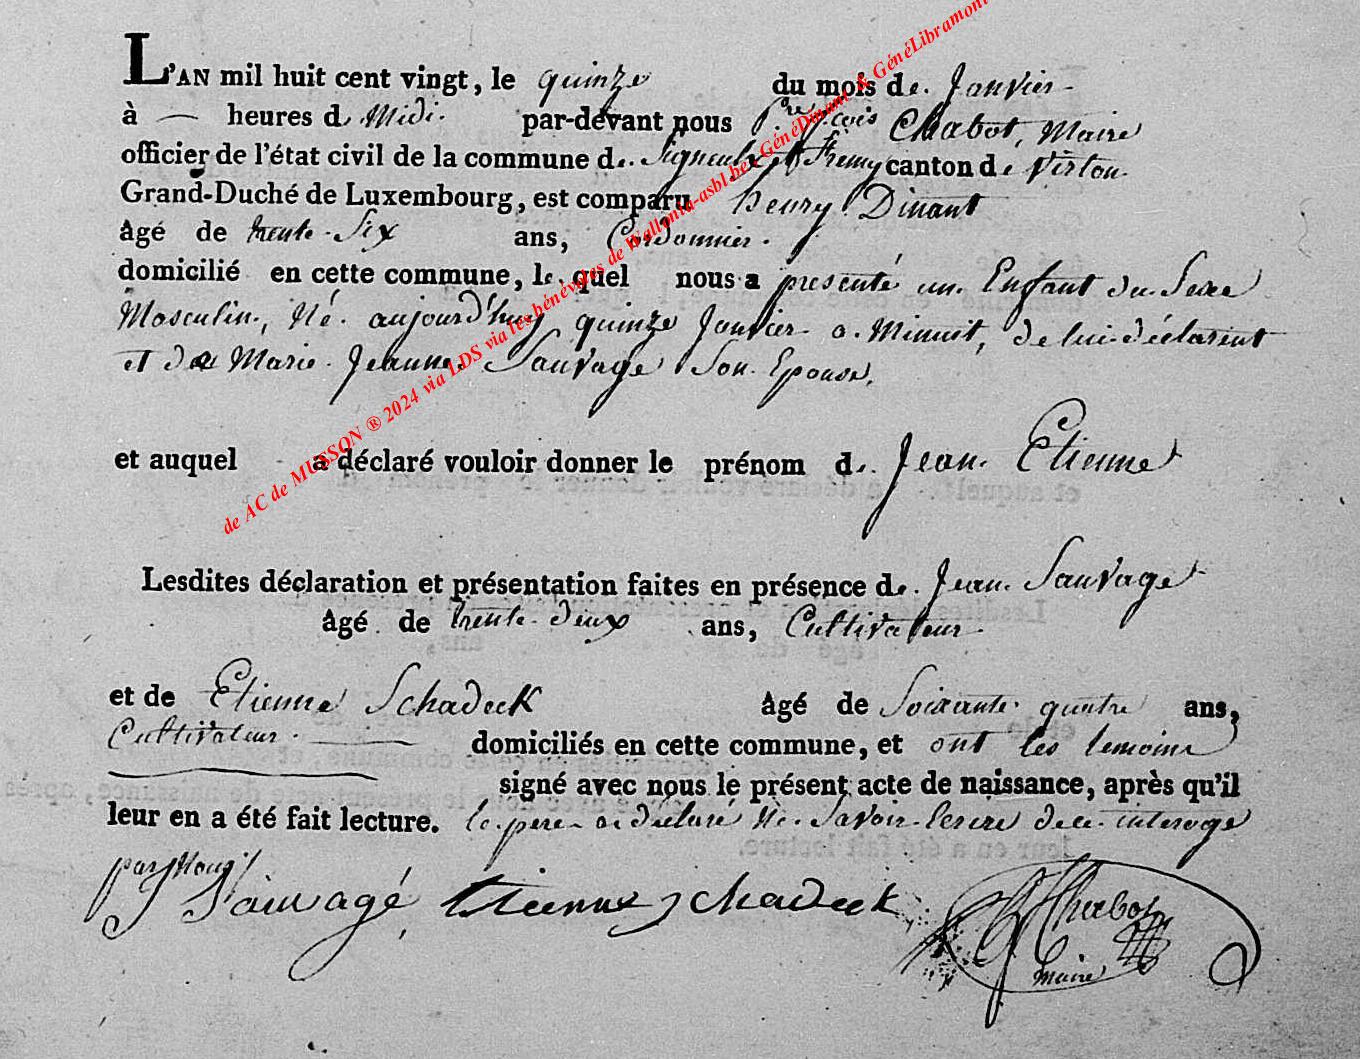 L'AN mil huit cent vingt, le quinze du mois de Janvier
à — heures de Midi par-devant nous Pre fcois Chabot, Maire
officier de l'état civil de la commune de Signeulx et canton de Virton
Grand-Duché de Luxembourg, est comparu henry Dinant
âgé de trente Six ans, Cordonnier
domicilié en cette commune, le quel nous a présenté un Enfant du Sexe
Masculin, Né aujourd'huy quinze Janvier a Minuit, de lui déclarent
et de Marie Jeanne Sauvage Son Epouse,
et auquel a déclaré vouloir donner le prénom de Jean Etienne
Lesdites déclaration et présentation faites en présence de Jean Sauvage
âgé de trente deux ans, Cultivateur
et de Etienne Schadeck âgé de Soixante quatre ans,
Cultivateur domiciliés en cette commune, et ont les temoins
signé avec nous le présent acte de naissance, après qu'il
leur en a été fait lecture. le pere a déclaré Ne Savoir Ecrire de ce interogé
par Nous
J Sauvagé Etienne schadeck Chabot
maire
de AC de MUSSON ® 2024 via LDS via les bénévoles de Wallonia-asbl.be, GénéDinant & GénéLibramont